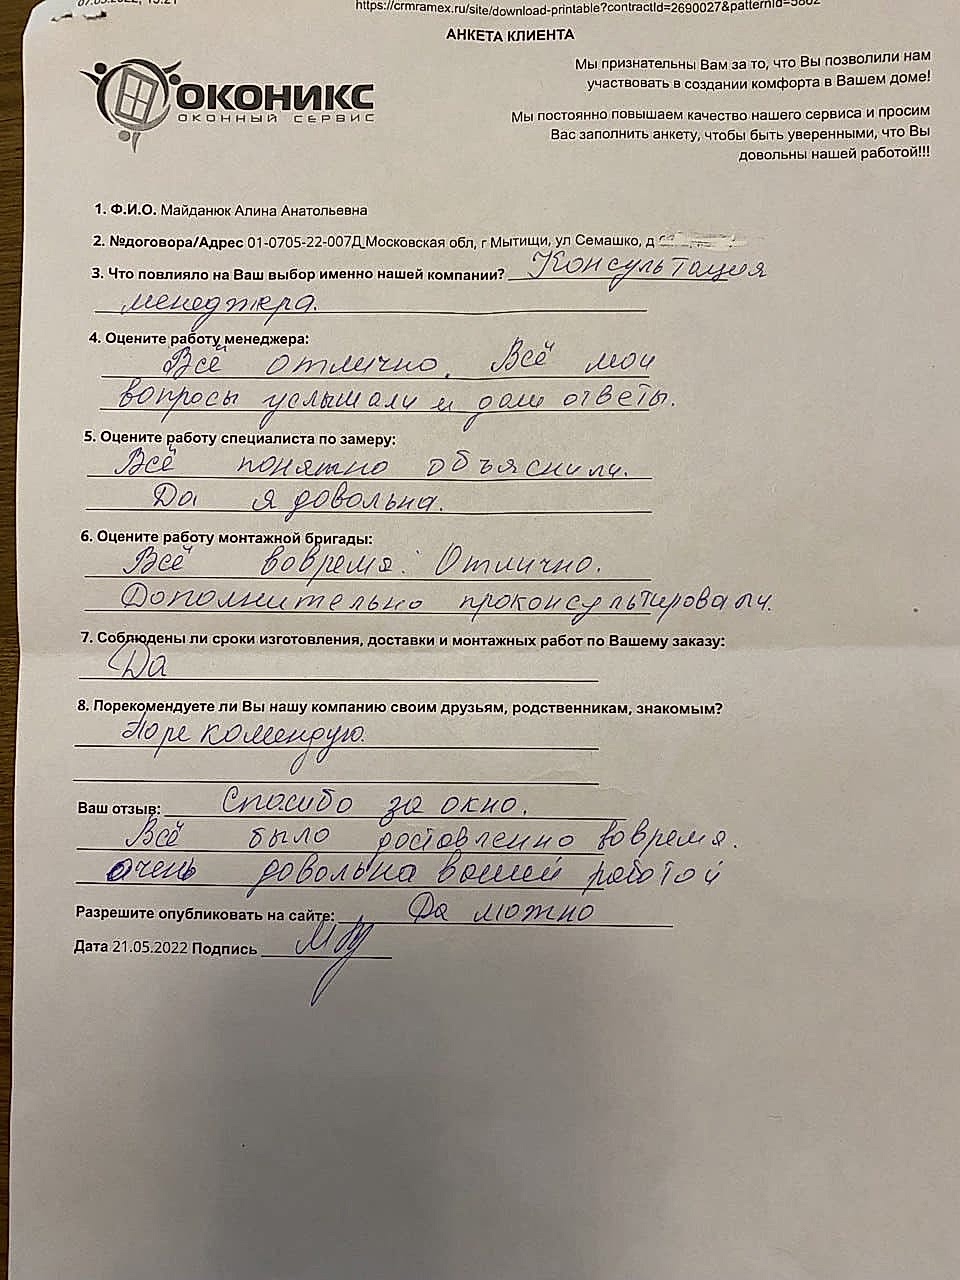 https://crmramex.ru/site/download-printable?contractId=2690027&patternId=5802
АНКЕТА КЛИЕНТА
ОКОНИКС
ОКОННЫЙ СЕРВИС
Мы признательны Вам за то, что Вы позволили нам
участвовать в создании комфорта в Вашем доме!
Мы постоянно повышаем качество нашего сервиса и просим
Вас заполнить анкету, чтобы быть уверенными, что Вы
довольны нашей работой!!!
1. Ф.И.О. Майданюк Алина Анатольевна
2. №договора/Адрес 01-0705-22-007Д Московская обл, г Мытищи, ул Семашко, д
3. Что повлияло на Ваш выбор именно нашей компании? Консультация
менеджера.
4. Оцените работу менеджера:
Всё отлично. Всё мои
вопросы услышали и дали ответы.
5. Оцените работу специалиста по замеру:
Всё понятно объяснили.
Да я довольна.
6. Оцените работу монтажной бригады:
Всё вовремя. Отлично.
Дополнительно проконсультировали.
7. Соблюдены ли сроки изготовления, доставки и монтажных работ по Вашему заказу:
Да
8. Порекомендуете ли Вы нашу компанию своим друзьям, родственникам, знакомым?
Порекомендую.
Ваш отзыв: Спасибо за окно.
Всё было доставленно вовремя.
очень довольна вашей работой
Разрешите опубликовать на сайте: Да можно
Дата 21.05.2022 Подпись